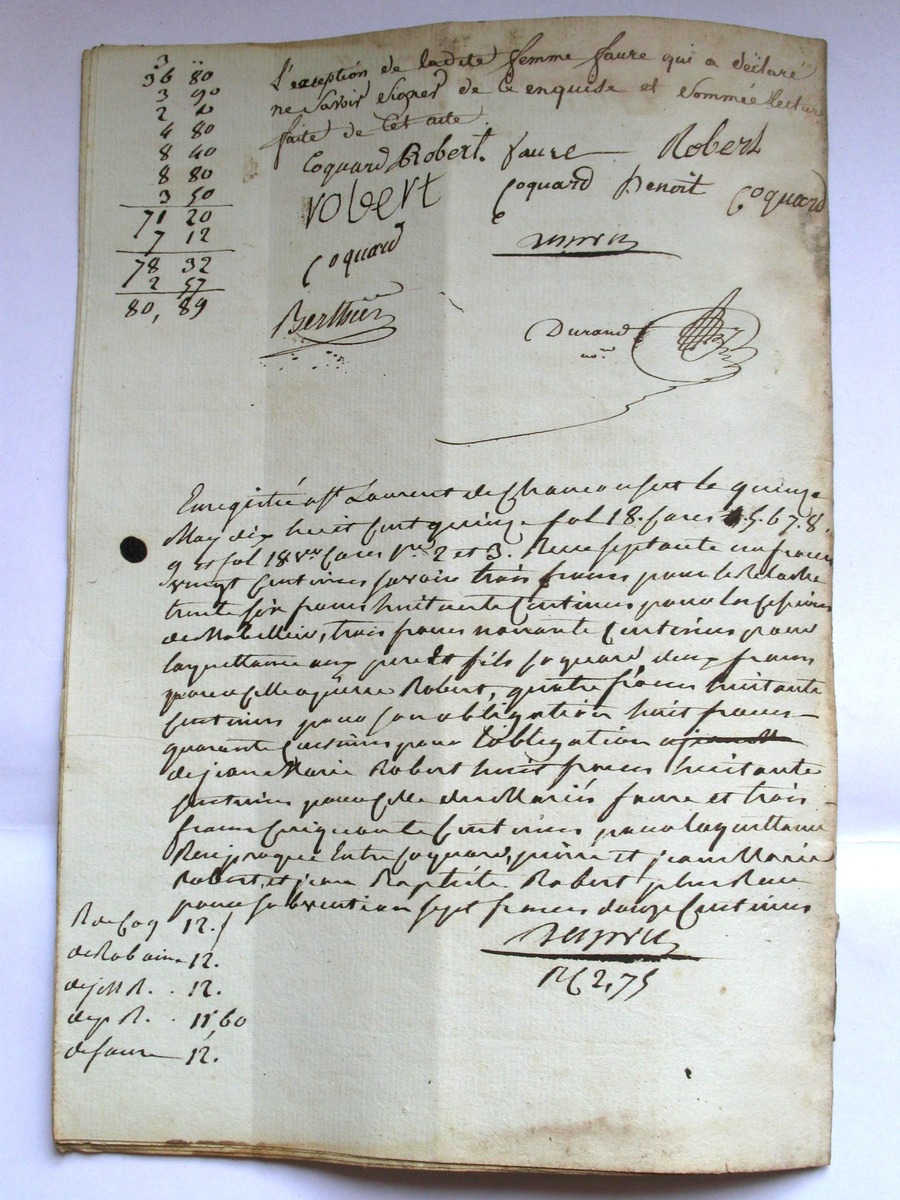 3 "
36 80
3 90
2 "
4 80
8 40
8 80
3 50
71 20
7 12
78 32
2 57
80, 89
L'exception de ladite femme faure qui a déclaré
ne savoir signer de ce enquise et sommée lecture
faite de cet acte.
Coquard Robert. faure Robert
robert Coquard Benoit Coquard
Coquard
Berthier
Durand
nore
Enregistré a st Laurent de Chamousset le quinze
May dix huit cent quinze fol 18. cases 4.5.6.7.8.
9 et fol 18 vo. cases 1re 2 et 3. Reçu septante un francs
vingt centimes savoir trois francs pour le
trente six francs huitante centimes pour
de trois francs nonante centimes pour
la quittance aux pere et fils Coquard, deux francs
pour celle a pierre Robert, quatre francs huitante
centimes pour son obligation huit francs
quarante centimes pour l'obligation
de jean Marie Robert huit francs huitante
centimes pour celle des Mariés faure et trois
francs cinquante centimes pour la quittance
Reciproque Entre Coquard, pierre et jean Marie
Robert, et jean Baptiste Robert plus Reçu
pour subvention sept francs douze centimes
R de Coq 12.
de Rob 12.
de j M R. . 12.
de p R. . 11,60
de faure 12.
2,75